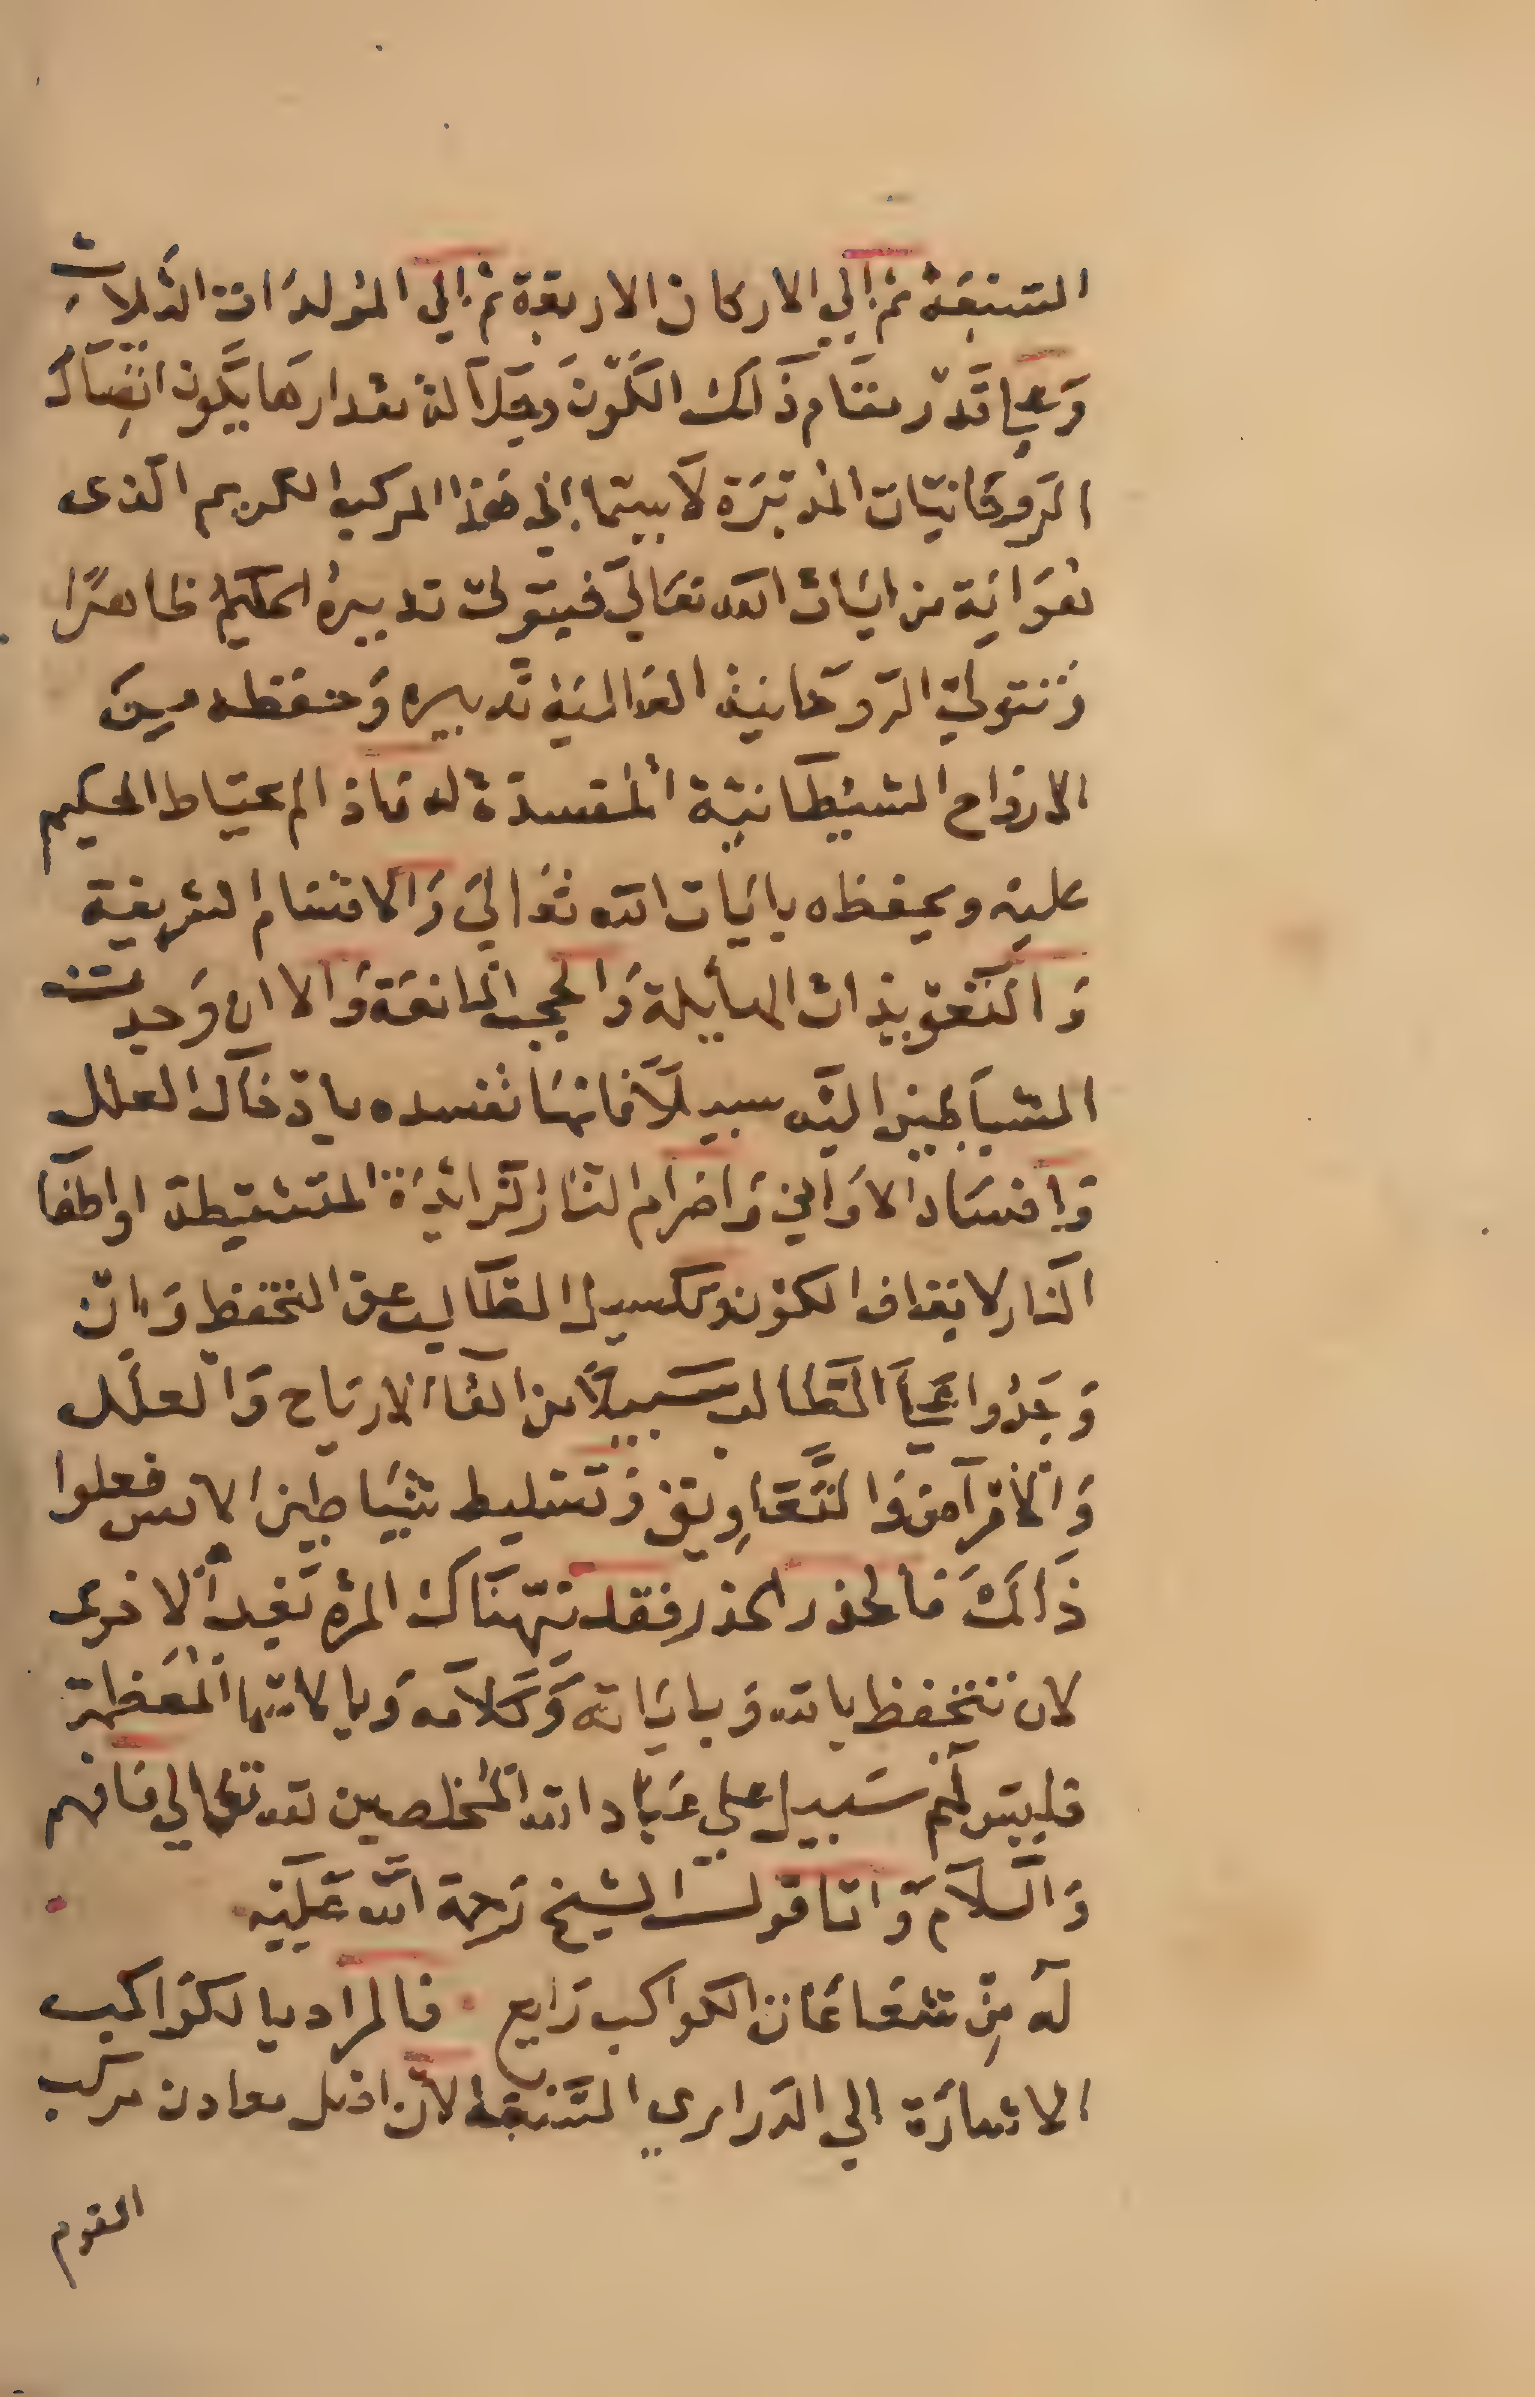 السبعة ثم الي الاركان الاربعة ثم الي المولدات الثلاث
وعلي قدر مقام ذالك الكون وجلالة مقدارها يكون اتصال
الروحانيات المدبرة لاسيما الي هذا المركب الكريم الذى
هو اية من ايات الله تعالي فيتولي تدبيره الحكيم ظاهرا
وتتولي الروحانية العالمية تدبيره وحفظه من
الارواح الشيطانية المفسدة له فاذا لم يحتاط الحكيم
عليه ويحفظه بايات الله تعالي والاقسام الشريفة
والتعويذات الهايلة والحجب المانعة والا ان وجدت
الشياطين اليه سبيلا فانها تفسده بادخال العلل
وافساد الاواني واضرام النار الزائدة المتشيطة او اطفا
النار لايقاف الكون وتكسيل الطالب عن التحفظ وان
وجدوا علي الطالب سبيلا من القاء الارياح والعلل
والامراض والتعاويق وتسليط شياطين الانس فعلوا
ذالك فالحذر الحذر فقد نبهناك المرة بعد الاخرى
لان تتحفظ بالله وباياته وكلامه وباسمائه المعظمة
فليس لهم سبيل علي عباد الله المخلصين لله تعالي فافهم
والسلام واما قول الشيخ رحمة الله عليه
له من شعاعات الكواكب رايع فالمراد بالكواكب
الاشارة الي الدراري السبعة لان اصل معادن مركب
القوم